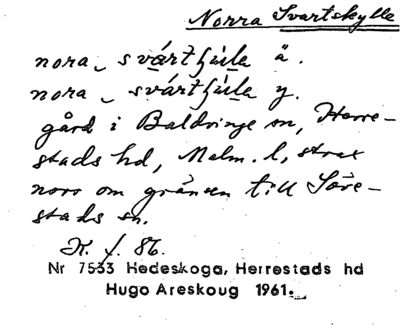 Norra Svartskylle
nora svártʃɥ̀la ä.
nora svártʃɥ̀la y.
gård i Baldringe sn, Herre-
stads hd, Malm. l, strax
norr om gränsen till Söve-
stads sn.
K. f. 86.
Nr 7533 Hedeskoga, Herrestads hd
Hugo Areskoug 1961.